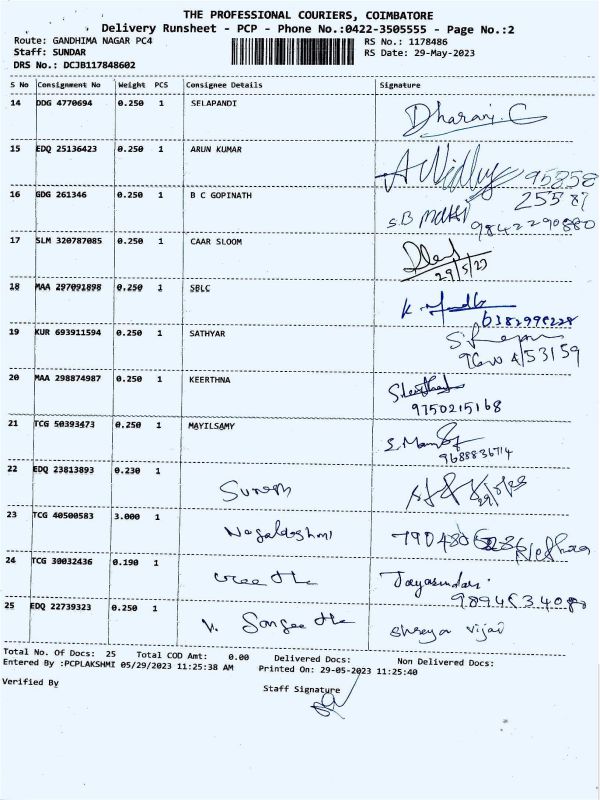 THE PROFESSIONAL COURIERS, COIMBATORE
Delivery Runsheet - PCP - Phone No.:0422-3505555 - Page No.:2
Route: GANDHIMA NAGAR PC4 RS No.: 1178486
Staff: SUNDAR RS Date: 29-May-2023
DRS No.: DCJB117848602
S No Consignment No Weight PCS Consignee Details Signature
14 DDG 4770694 0.250 1 SELAPANDI Dharani. G
15 EDQ 25136423 0.250 1 ARUN KUMAR 95858
255 87
16 GDG 261346 0.250 1 B C GOPINATH S.B
9842290880
17 SLM 320787085 0.250 1 CAAR SLOOM
29/5/23
18 MAA 297091898 0.250 1 SBLC K.
6382999228
19 KUR 693911594 0.250 1 SATHYAR
53159
20 MAA 298874987 0.250 1 KEERTHNA
9750215168
21 TCG 50393473 0.250 1 MAYILSAMY
9688836714
22 EDQ 23813893 0.230 1 Suresh
23 TCG 40500583 3.000 1 Nagalakshmi
24 TCG 30032436 0.190 1 Geetha Jayasundari
25 EDQ 22739323 0.250 1 V. Sangeetha Shreya Vijay
Total No. Of Docs: 25 Total COD Amt: 0.00 Delivered Docs: Non Delivered Docs:
Entered By :PCPLAKSHMI 05/29/2023 11:25:38 AM Printed On: 29-05-2023 11:25:40
Verified By Staff Signature